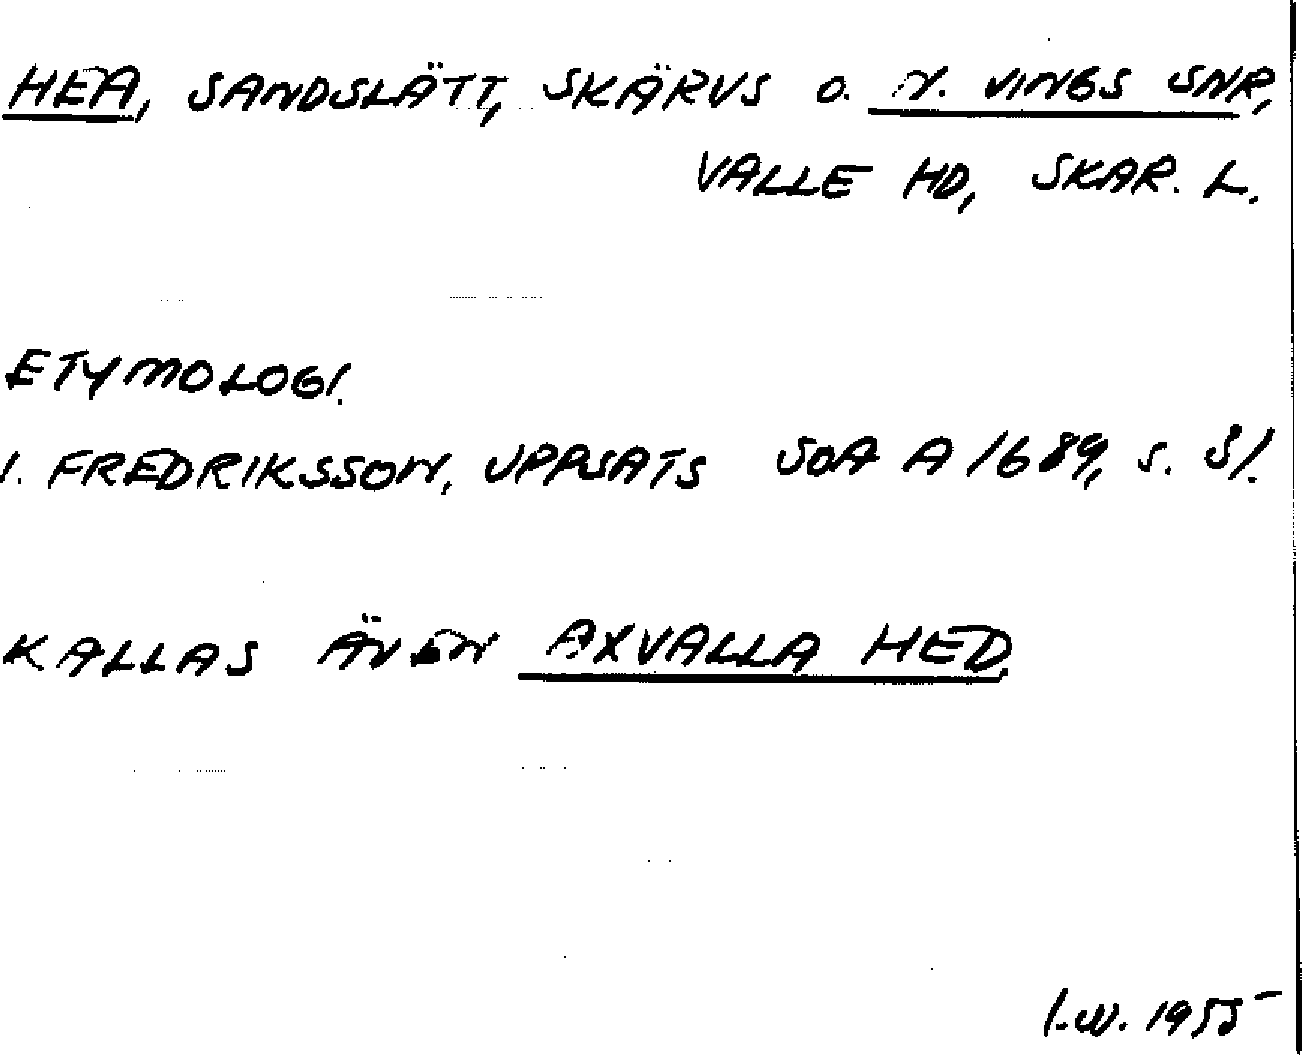 HEA, SANDSLÄTT, SKÄRVS O. N. VINGS SNR,
VALLE HD, SKAR. L.
ETYMOLOGI.
I. FREDRIKSSON, UPPSATS SOA A 1689, S. 51.
KALLAS ÄVEN AXVALLA HED.
I.W. 1955